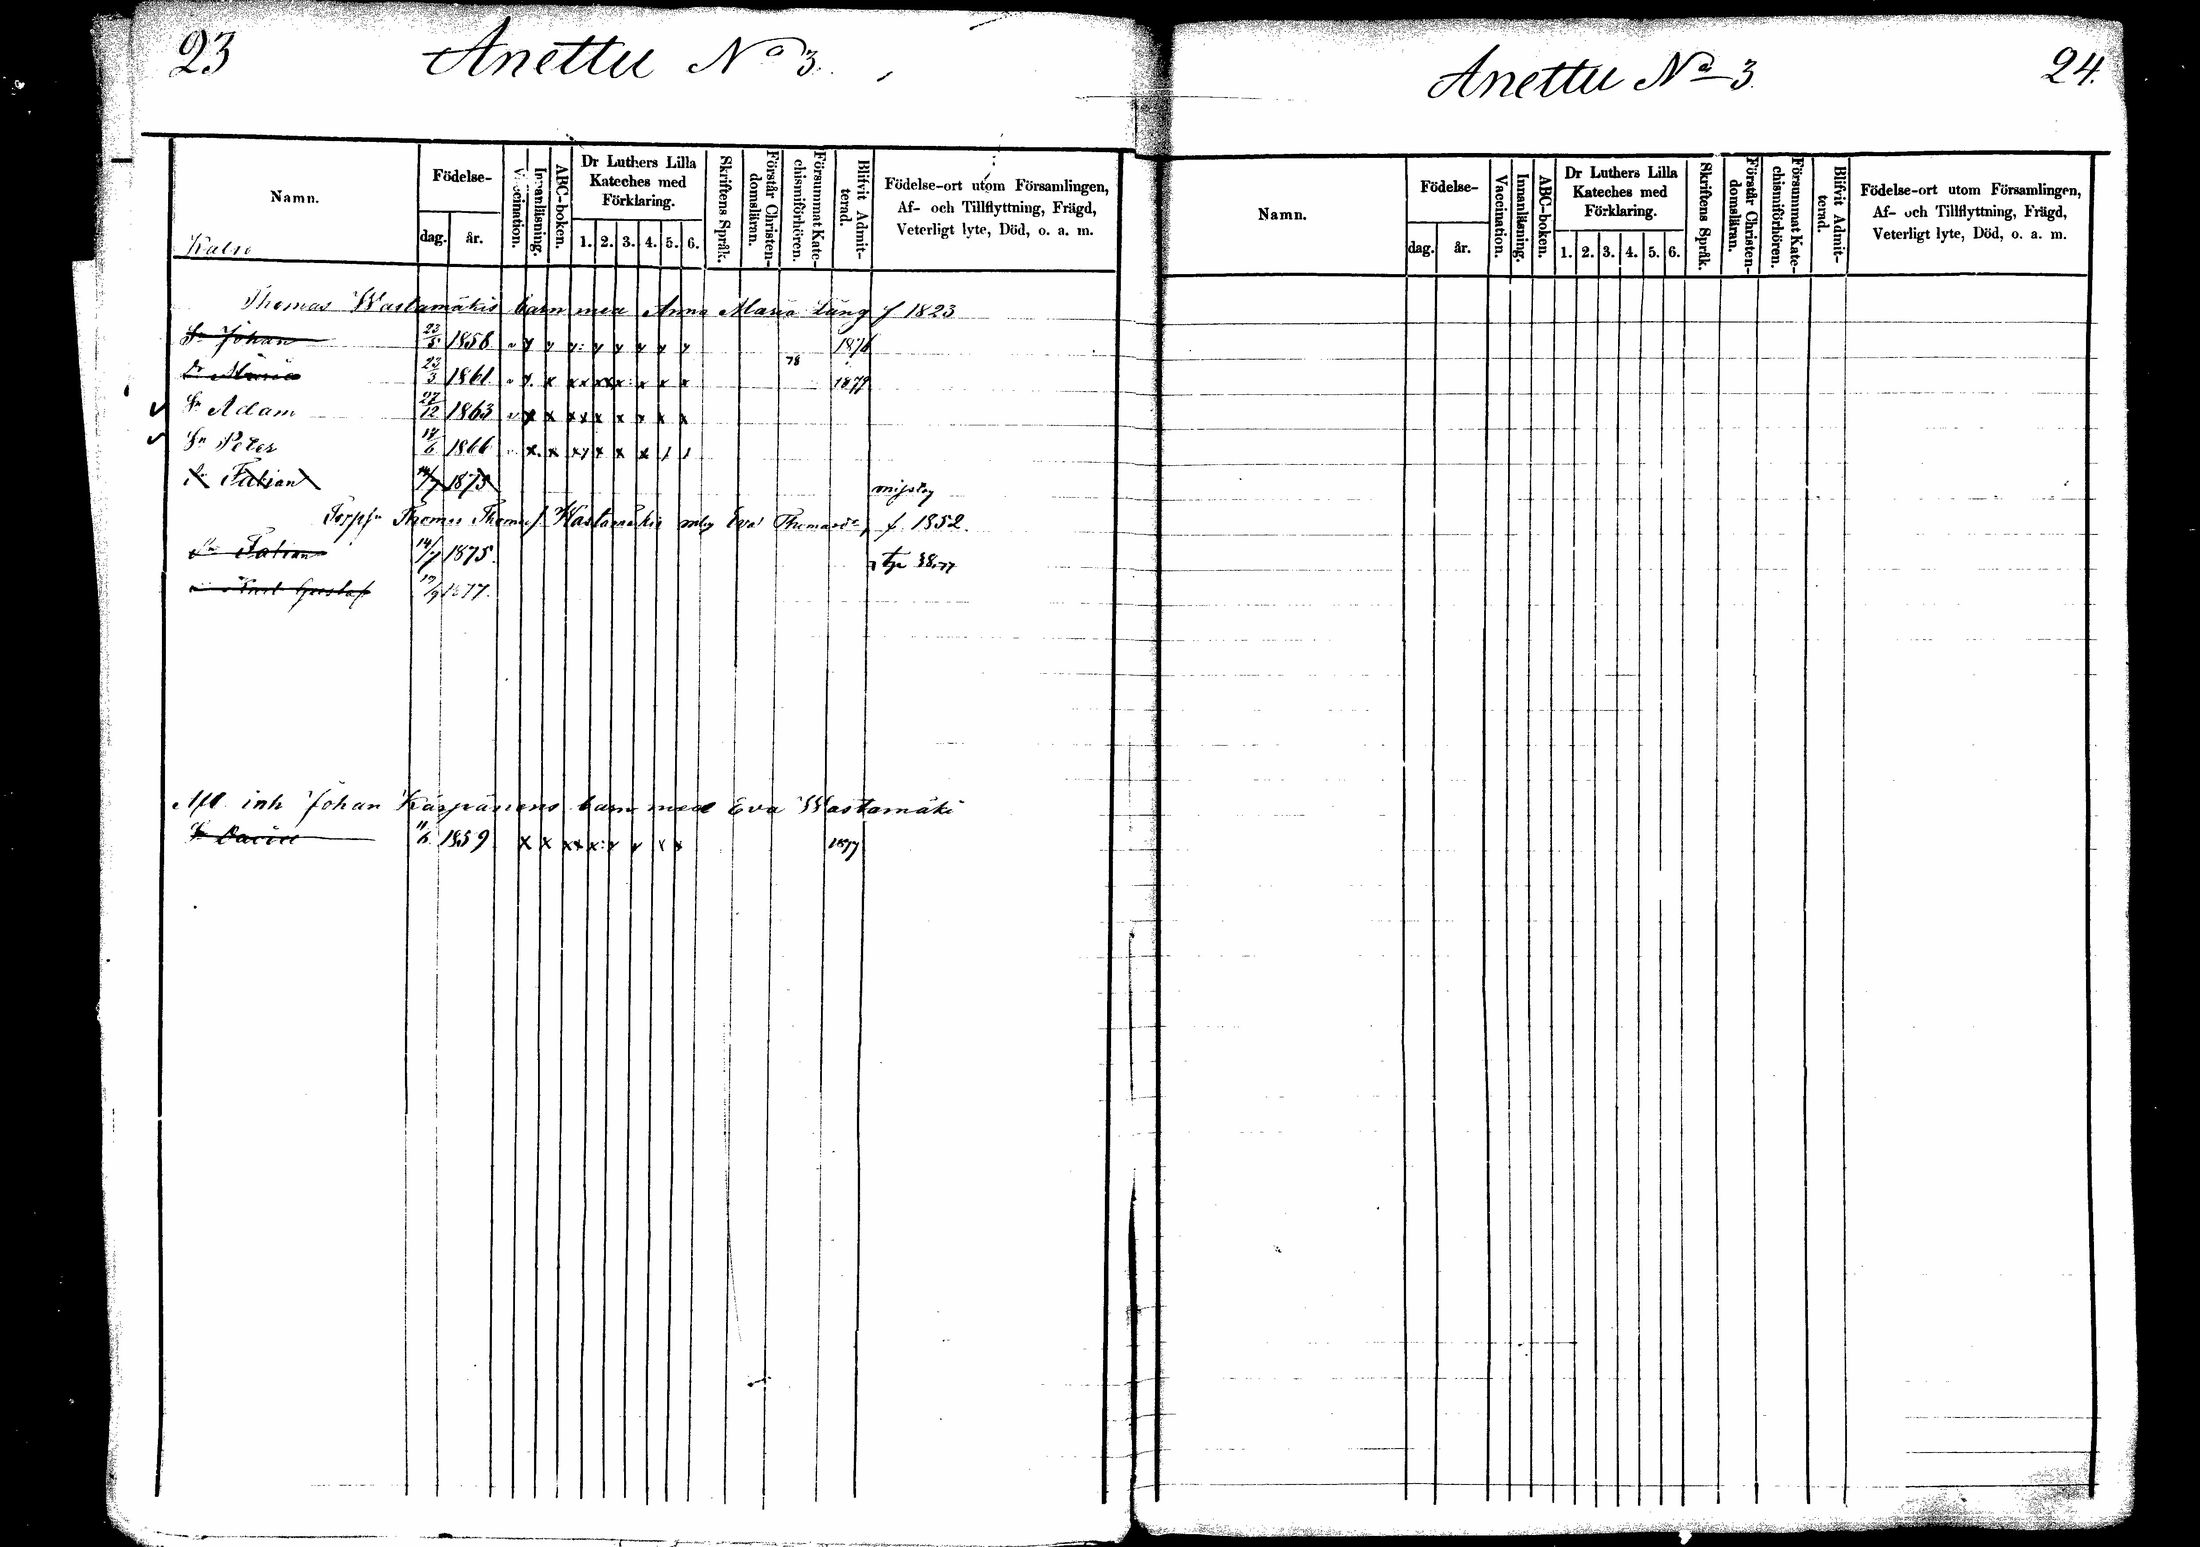 23 Anettu No 3.
Namn. Födelse- dag. år. Vaccination. Innanläsning. ABC-boken. Dr Luthers Lilla Kateches med Förklaring. 1. 2. 3. 4. 5. 6. Skriftens Språk. Förstår Christendomsläran. Försummat Katechismiförhören. Blifvit Admitterad. Födelse-ort utom Församlingen, Af- och Tillflyttning, Frägd, Veterligt lyte, Död, o. a. m.
Thomas Wastamäkis barn med Anna Maria Ling f 1823
Sn Johan 23/5 1858 y y y: y y y y y 1876
Dr Maria 23/3 1861 x. x xx xx x: x x x 78 1879
Sn Adam 27/12 1863 x x xx x x x x x
Sn Peter 17/6 1866 x. x xy x x x / /
Fabian 14/7 1875
Thomas Wastamäkis Eva Thomasdr, f. 1852.
Sn Fabian 14/7 1875.
Gustaf 19/9 1877.
Afl. inh Johan Kärpänens barn med Eva Wastamäki
Sn David 11/6 1859 x x xx x: y y x x 1877
Anettu No 3. 24.
Namn. Födelse- dag. år. Vaccination. Innanläsning. ABC-boken. Dr Luthers Lilla Kateches med Förklaring. 1. 2. 3. 4. 5. 6. Skriftens Språk. Förstår Christendomsläran. Försummat Katechismiförhören. Blifvit Admitterad. Födelse-ort utom Församlingen, Af- och Tillflyttning, Frägd, Veterligt lyte, Död, o. a. m.